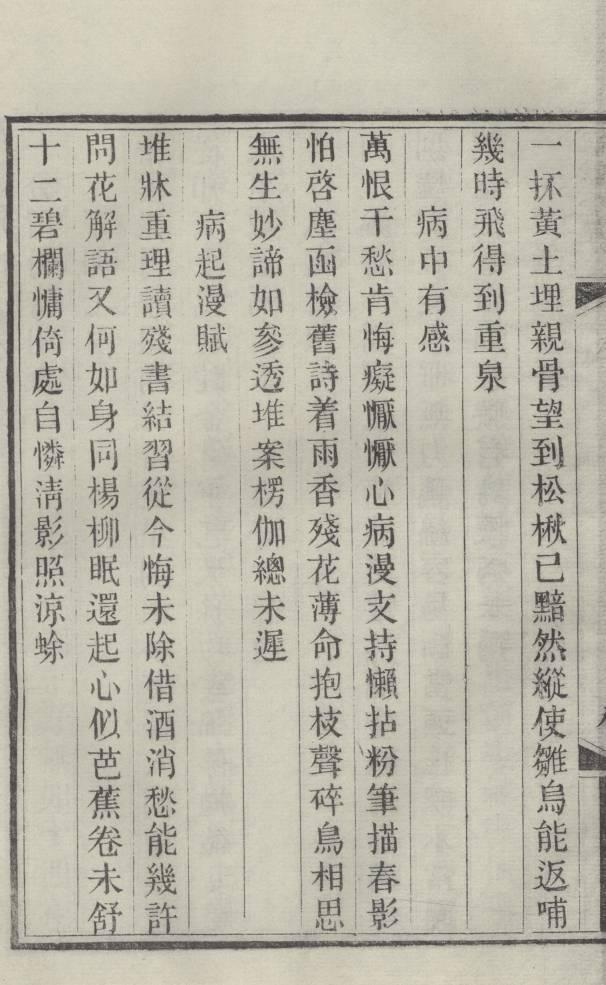 一抔黃土埋親骨望到松楸已黯然縱使雛烏能返哺
幾時飛得到重泉
病中有感
萬恨千愁肯悔癡懨懨心病漫支持懶拈粉筆描春影
怕啓塵函檢舊詩着雨香殘花薄命抱枝聲碎鳥相思
無生妙諦如參透堆案楞伽總未遲
病起漫賦
堆牀重理讀殘書結習從今悔未除借酒消愁能幾許
問花解語又何如身同楊柳眠還起心似芭蕉卷未舒
十二碧欄慵倚處自憐淸影照涼蜍